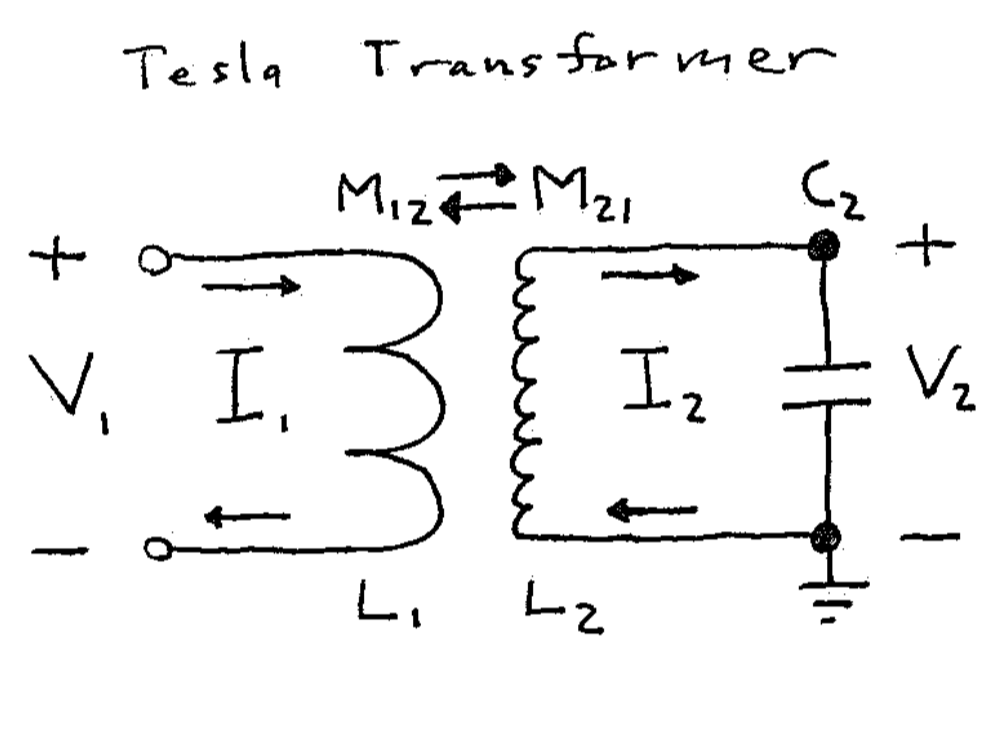 Tesla Transformer
M₁₂ ⇄ M₂₁ C₂
+ +
V₁ I₁ I₂ V₂
− −
L₁ L₂